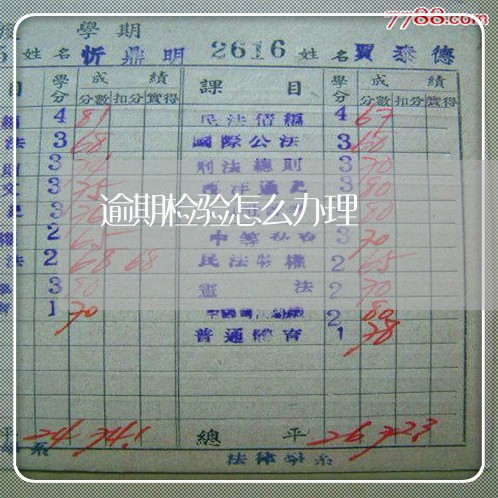 7788.com
學期
姓名 忻鼎明 2616 姓名 賈泰德
目 學分 成績 課目 學分 成績
分數 扣分 實得 分數 扣分 實得
4 81 民法債編 4 67
法 3 68 國際公法 3 60
3 刑法總則 3 70
文 3 75 西洋通史 3 80
3 80
逾期检验怎么办理
2 65 3 70
法 2 68 68 民法物權 2 65
3 80 憲法 2 70
1 70 2 80
普通體育 1 78
平 24 74.1 總平 26 72.3
系 法律學系